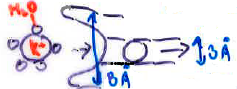 H₂O
K⁺
8 Å
3 Å